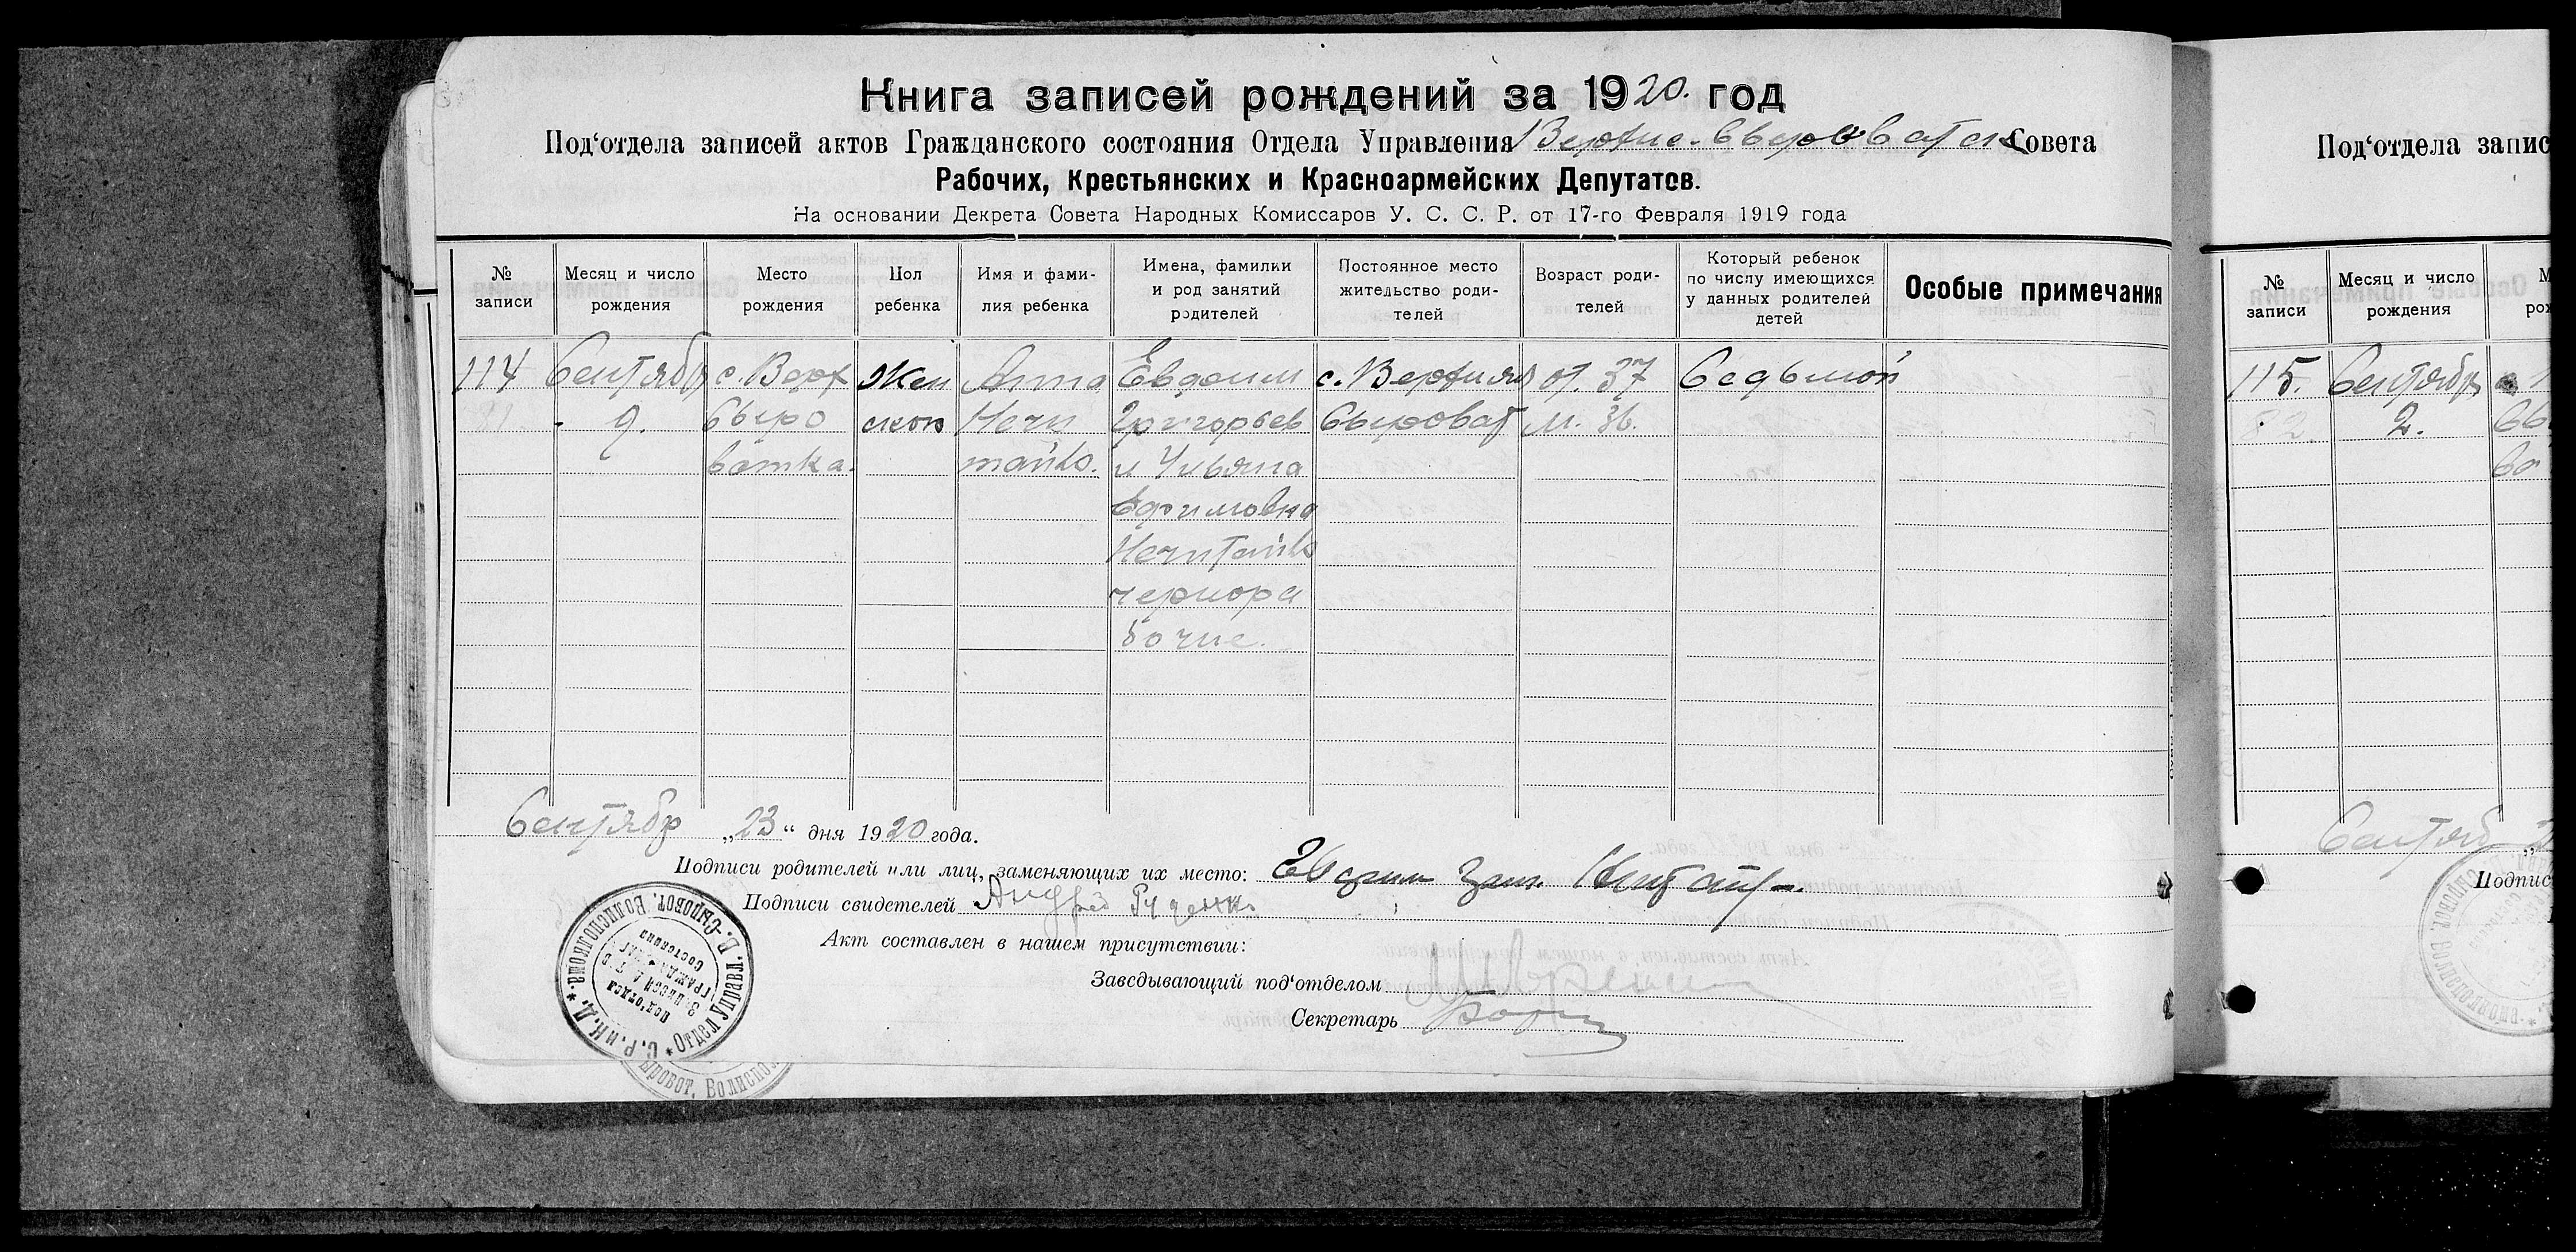 Книга записей рождений за 1920. год
Под‘отдела записей актов Гражданского состояния Отдела Управления Верхне-Сыроватск Совета
Рабочих, Крестьянских и Красноармейских Депутатов.
На основании Декрета Совета Народных Комиссаров У. С. С. Р. от 17-го Февраля 1919 года
№ записи
Месяц и число рождения
Место рождения
Пол ребенка
Имя и фами-
лия ребенка
Имена, фамилии
и род занятий
родителей
Постоянное место
жительство роди-
телей
Возраст роди-
телей
Который ребенок
по числу имеющихся
у данных родителей
детей
Особые примечания
114
81.
Сентябр
9.
с. Верх
Сыро
ватка.
Жен
ской
Анна
Нечи
тайло.
Евдоким
Григорьев
и Ульяна
Ефимовна
Нечитайло
чернора
бочие.
с. Верхняя
Сыроват
от. 37
м. 36.
Седьмой
Сентябр „23“ дня 1920 года.
Подписи родителей или лиц, заменяющих их место:
Подписи свидетелей Андрей Руденко
Акт составлен в нашем присутствии:
Заведывающий под‘отделом
Секретарь
С. Р. и К. Д. * Отдел Управл. В.-Сыроват. Волисполкома. *
Под‘отдел
Записей А-тов
ГРАЖДАНСК.
Состояния
Сыроват. Волиспо
Под‘отдела запис
№ записи
Месяц и число рождения
М
рож
115.
82.
Сентябр
2.
с.
Сы
ва
Сентяб
Подпис